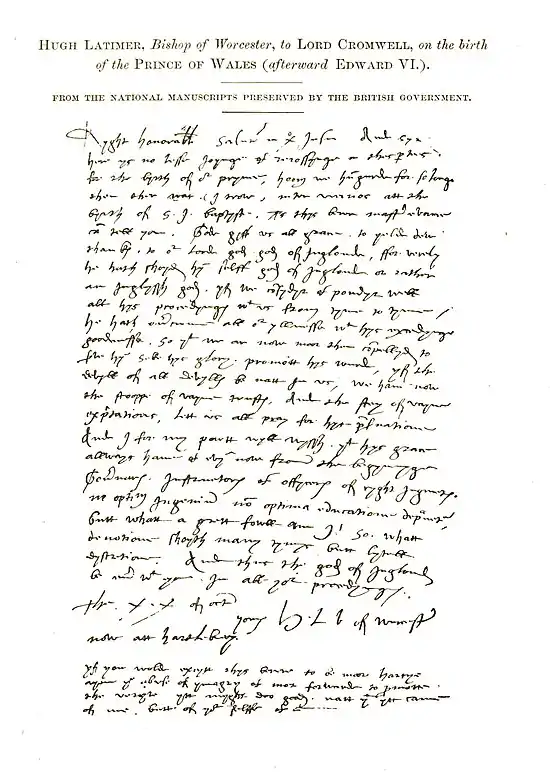 HUGH LATIMER, Bishop of Worcester, to LORD CROMWELL, on the birth
of the PRINCE OF WALES (afterward EDWARD VI.).
FROM THE NATIONAL MANUSCRIPTS PRESERVED BY THE BRITISH GOVERNMENT.
Ryght honorable Salutem in Jesu And Syr
her ys no lesse Joyynge
for the byrth of our prynce, hoom we for so longe
then ther was (I trow) inter vicinos att the
byrth of S. J. baptyste. as thys
can tell you. Gode gyffe us all grace to yelde
thankes to our Lord god god of Inglonde, ffor verely
he hath shoyd hym selff god of Inglonde or rather
an Inglyssh god yf we consydyr & pondyr well
all hys procedynges with us from tyme to tyme
he hath overcumme all our yllnesse with hys excedynge
goodnesse. So that we ar now moor then compellyd to
serve hym seke hys glory promott hys wurde, yf the
devyll of all devylls be natt in us, we have now
the stoppe of vayne trustes And the stey of vayne
expectations, lett us all pray for hys preservatione
And I for my partt wyll wyssh that hys grace
allways have & evyn now from the begynynge
Governares, Instructores & offyceres of ryght Jugmente
ne optimum Ingenium non optima educatione depravetur
butt whatt a grett fowll am I! So, whatt
devotione shoyth many tymys butt lytell
dyscretione And thus the god of Inglonde
be ever with you In all your procedynges.
the. of
now att hartlebury youres H L b of wurcestere
yf you wolde excytt thys berere to be moor hartye
ayen the abuse of ymagry & mor forwarde to promotte
the veryte ytt myght doo goode. natt that ytt came
of me. butt of your selffe &